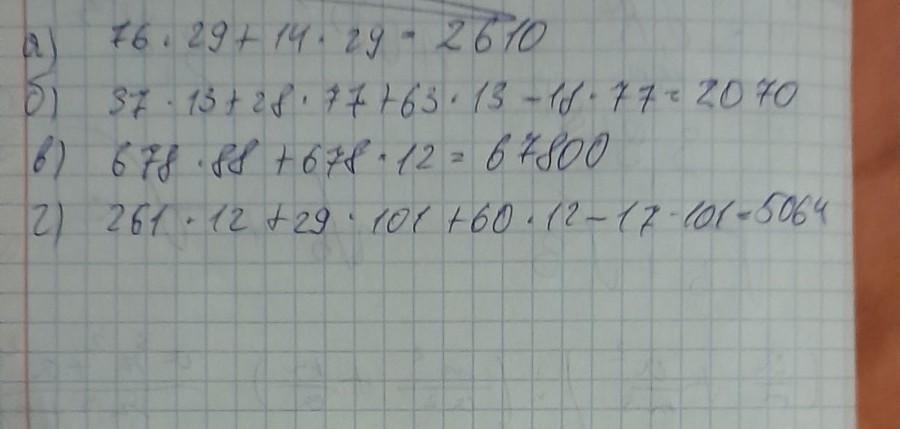 а) 76 · 29 + 14 · 29 = 2610
б) 37 · 13 + 28 · 77 + 63 · 13 - 18 · 77 = 2070
в) 678 · 88 + 678 · 12 = 67800
г) 261 · 12 + 29 · 101 + 60 · 12 - 17 · 101 = 5064